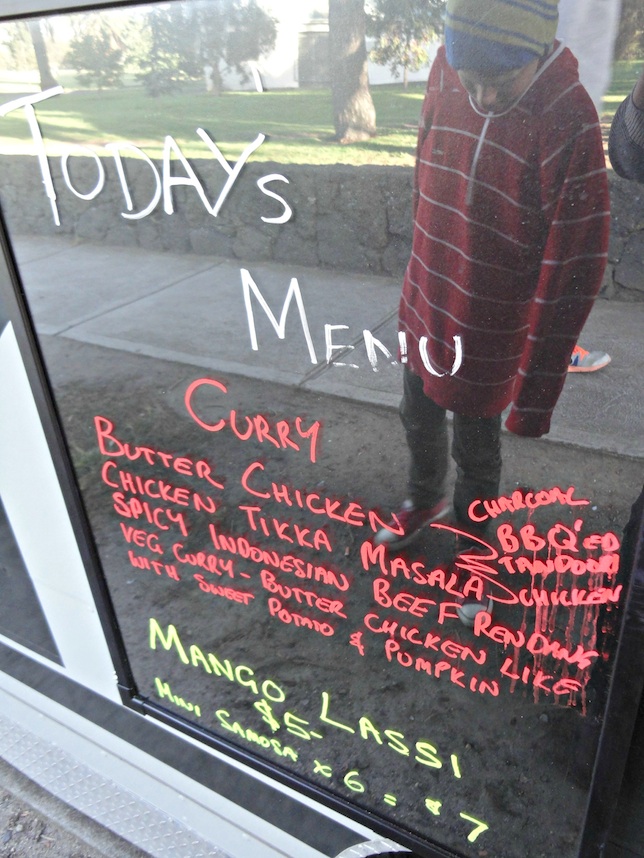 TODAYS
MENU
CURRY
BUTTER CHICKEN
CHICKEN TIKKA MASALA
CHARCOAL
BBQ'ED
TANDOORI
CHICKEN
SPICY INDONESIAN BEEF RENDANG
VEG CURRY - BUTTER CHICKEN LIKE
WITH SWEET POTATO & PUMPKIN
MANGO LASSI
$5-
MINI SAMOSA x 6 = $7